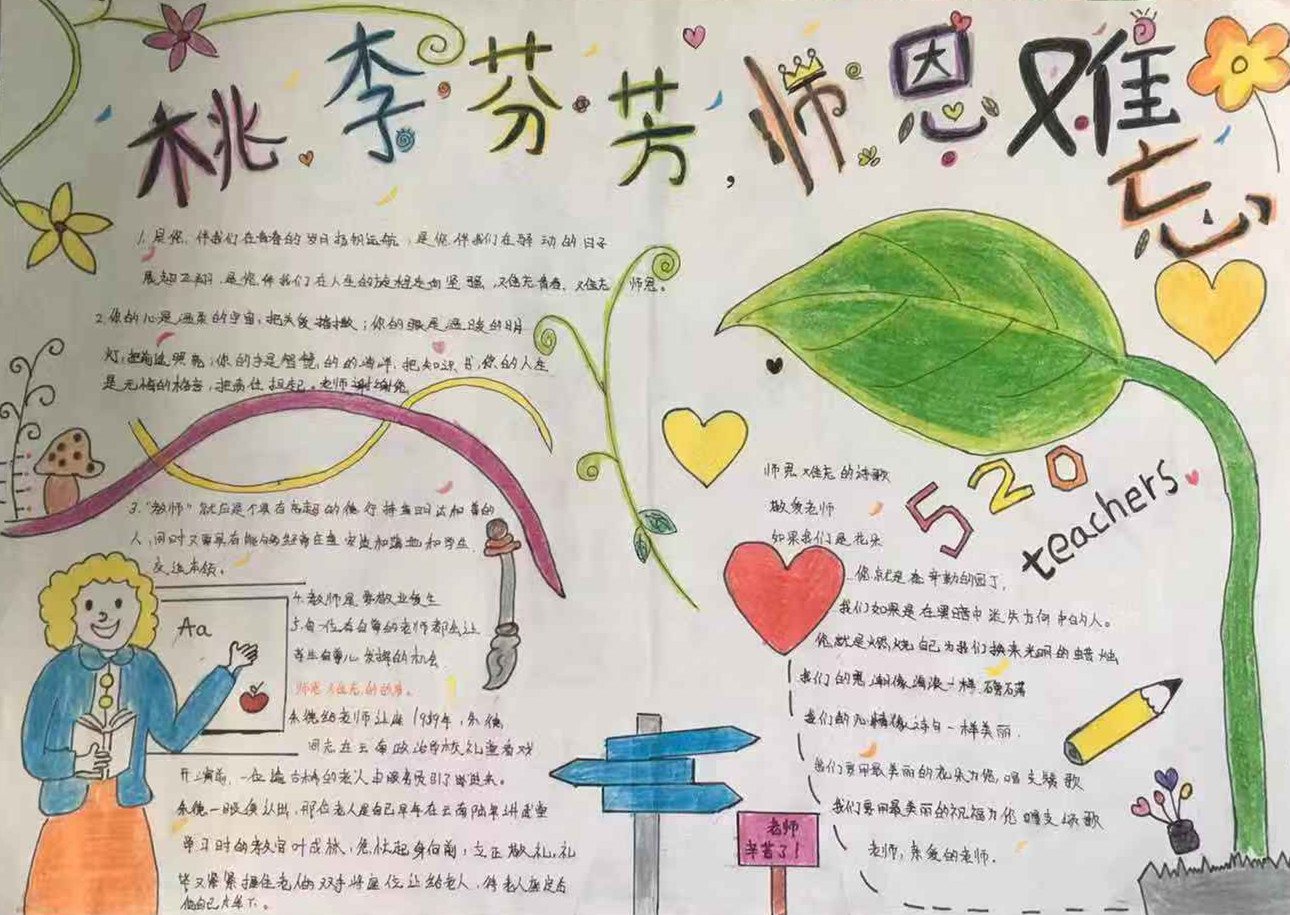 桃李芬芳，师恩难忘
1. 是您，伴我们在青春的岁月扬帆远航，是您伴我们在驿动的日子
展翅飞翔，是您伴我们在人生的旅程走向坚强，难忘青春，难忘师恩。
2. 你的心是温柔的宇宙，把关爱播撒；你的眼是温暖的明
灯，把前途照亮；你的手是智慧的的海洋，把知识；你的人生
是无悔的格言，把责任担起。老师谢谢您
3. "教师"就应是个具有高超的德行
人，同时又需具有能够经常在
交流本领。
4. 教师是要敬业爱生
5. 每一位有自尊的老师都会让
学生有发挥的机会
师恩难忘的故事。
朱德给老师让座 1959年，朱德
同志在云南政治学校礼堂看戏
开演前，一位古稀的老人由服务员引了进来。
朱德一眼便认出，那位老人是自己早年在云南陆军讲武堂
学习时的教官叶成林，急忙起身向前，立正敬礼，礼
毕又紧紧握住老人的双手将座位让给老人，待老人坐定后
他自己才坐下。
Aa
老师
辛苦了！
520
teachers
师恩难忘的诗歌
敬爱老师
如果我们是花朵
您就是在辛勤的园丁，
我们如果是在黑暗中迷失方向中的人。
您就是燃烧自己为我们换来光明的蜡烛
我们的思潮像海浪一样
我们的心情像诗句一样美丽．
我们要用最美丽的花朵为您，唱支赞歌
我们要用最美丽的祝福为您唱支颂歌
老师，亲爱的老师．